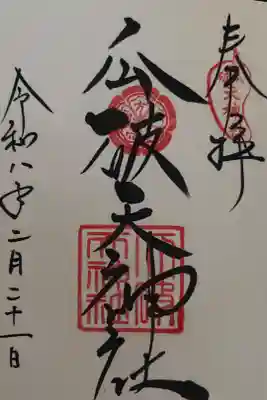 奉拝
瓜破天神社
令和八年二月二十一日